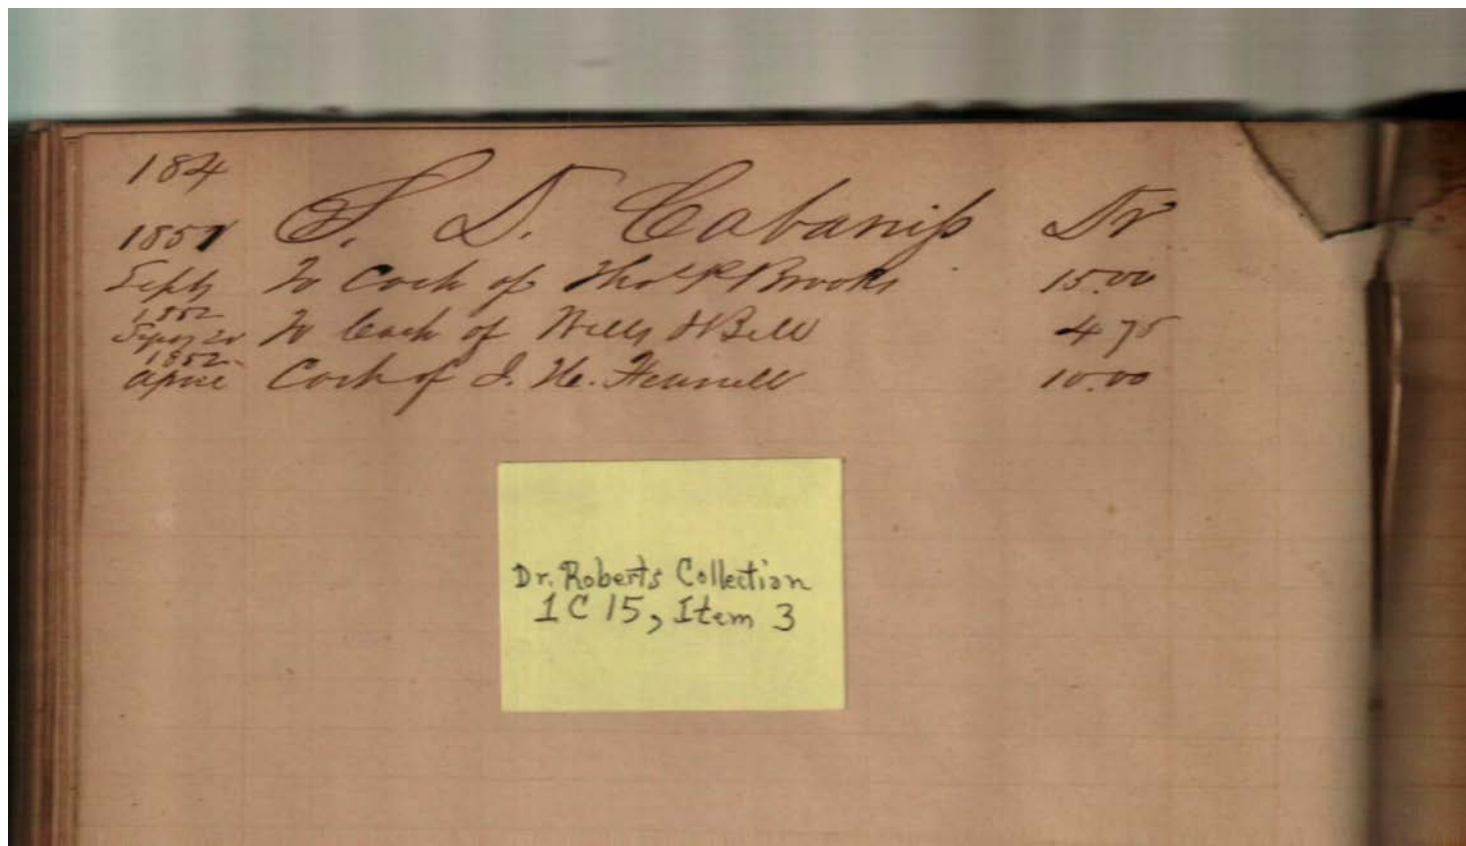 184
1851 S. D. Cabaniss Dr
Septr To Cash of Thos R Brooks 15.00
1852
20 To Cash of Wells & Bell 4 75
1852
April Cash of J. H. Fennell 10.00
Dr. Roberts Collection
1 C 15, Item 3